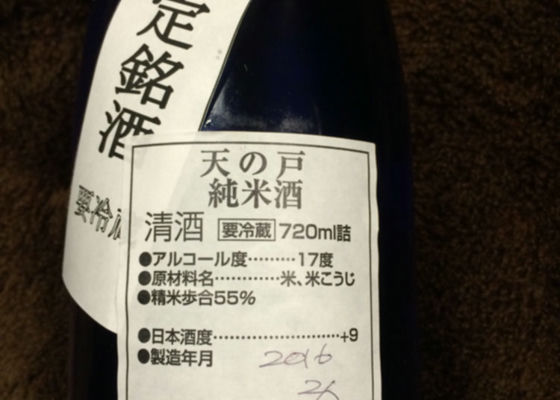 定銘酒
要冷
天の戸
純米酒
清酒 要冷蔵 720ml詰
●アルコール度………17度
●原材料名…………米、米こうじ
●精米歩合55%
●日本酒度……………………+9
●製造年月 2016